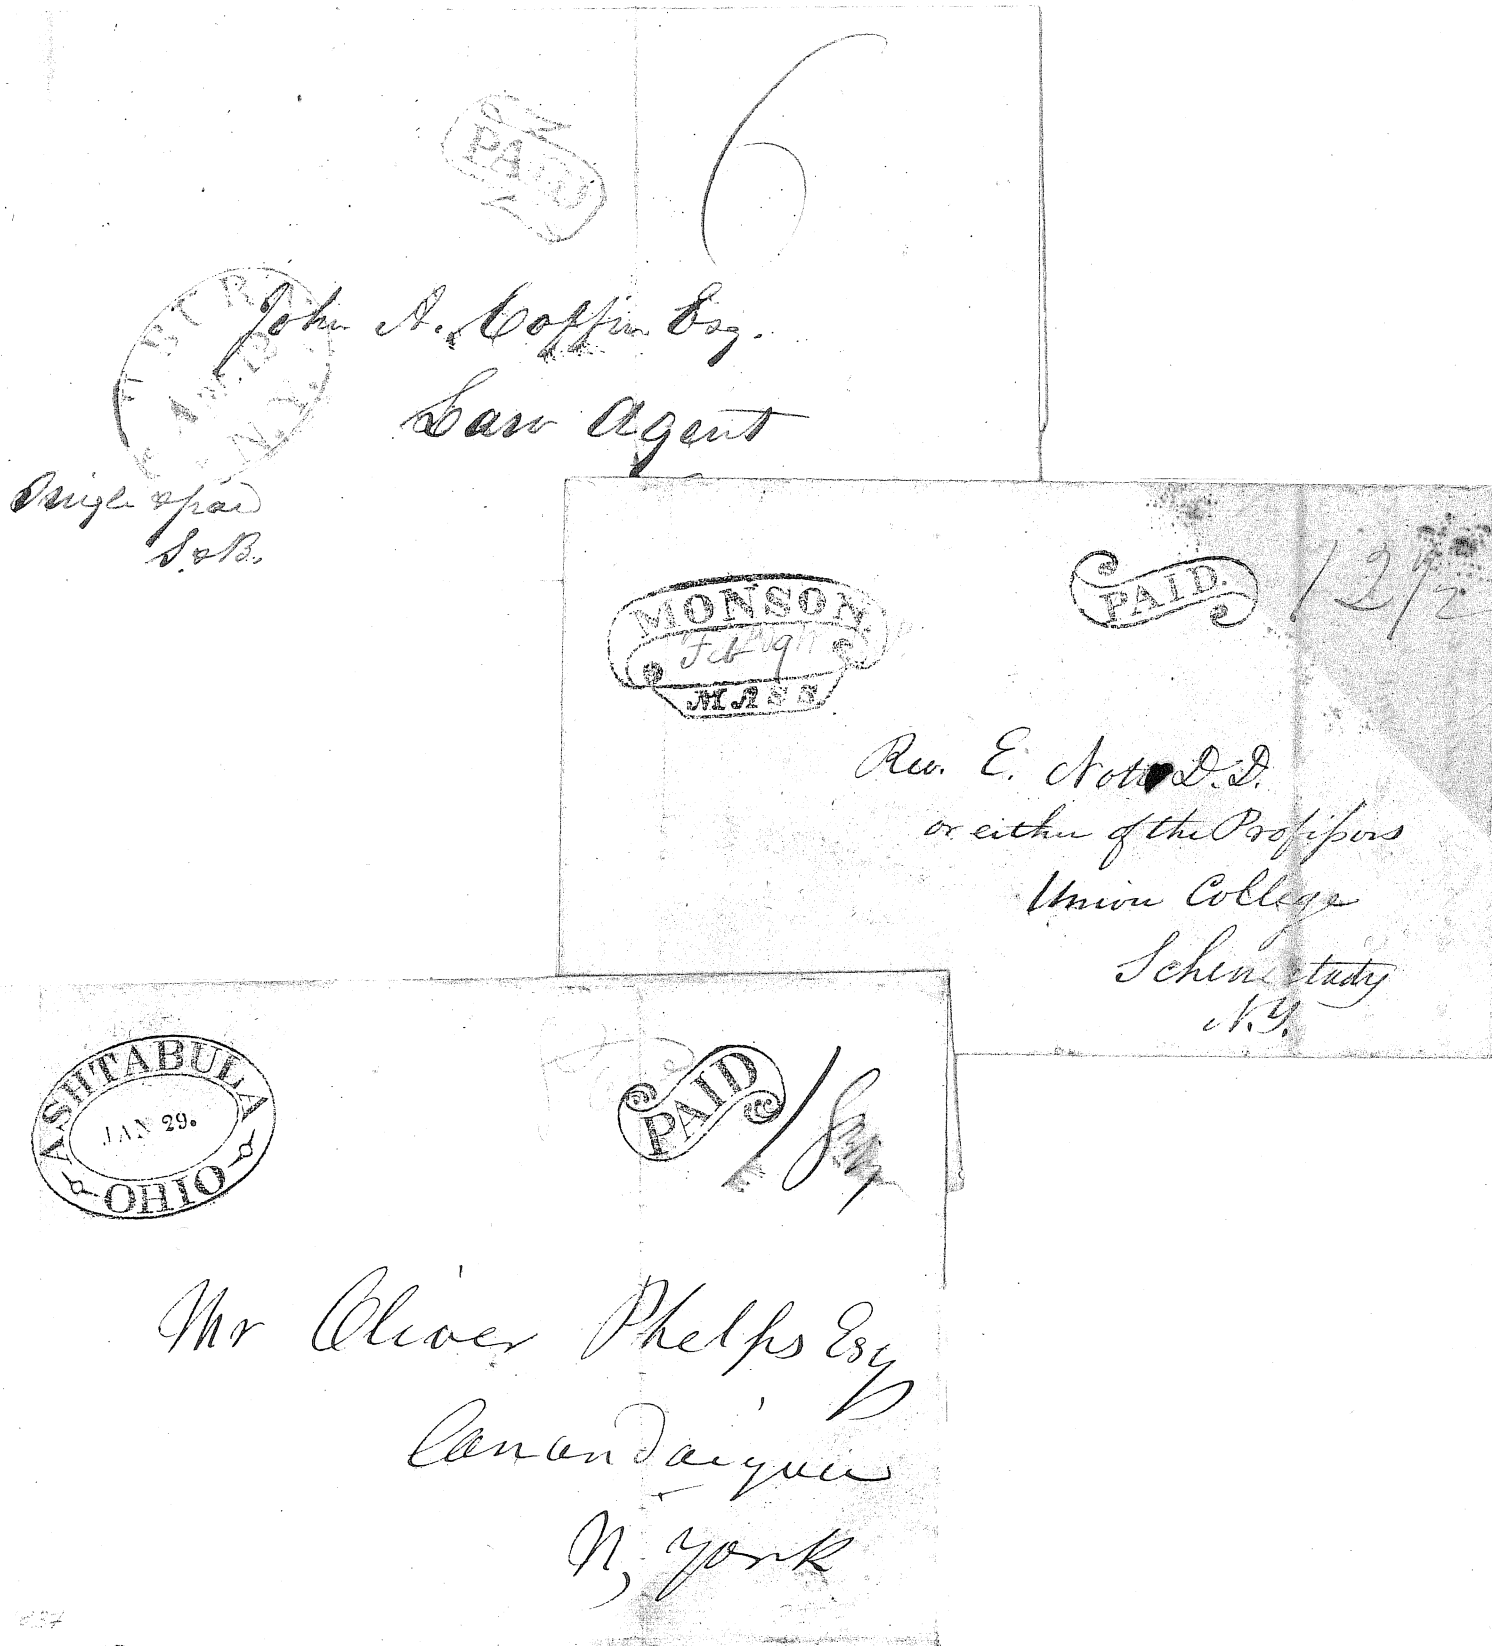 PAID
6
John A. Coffin Esq.
Law Agent
N.Y.
Single & paid
S. & B.
MONSON.
Feb
MASS
PAID.
12 1/2
Rev. E. Nott D.D.
or either of the Professors
Union College
Schenectady
N.Y.
ASHTABULA
JAN 29.
OHIO
PAID
Mr Oliver Phelps Esq
Canandaigua
N, York